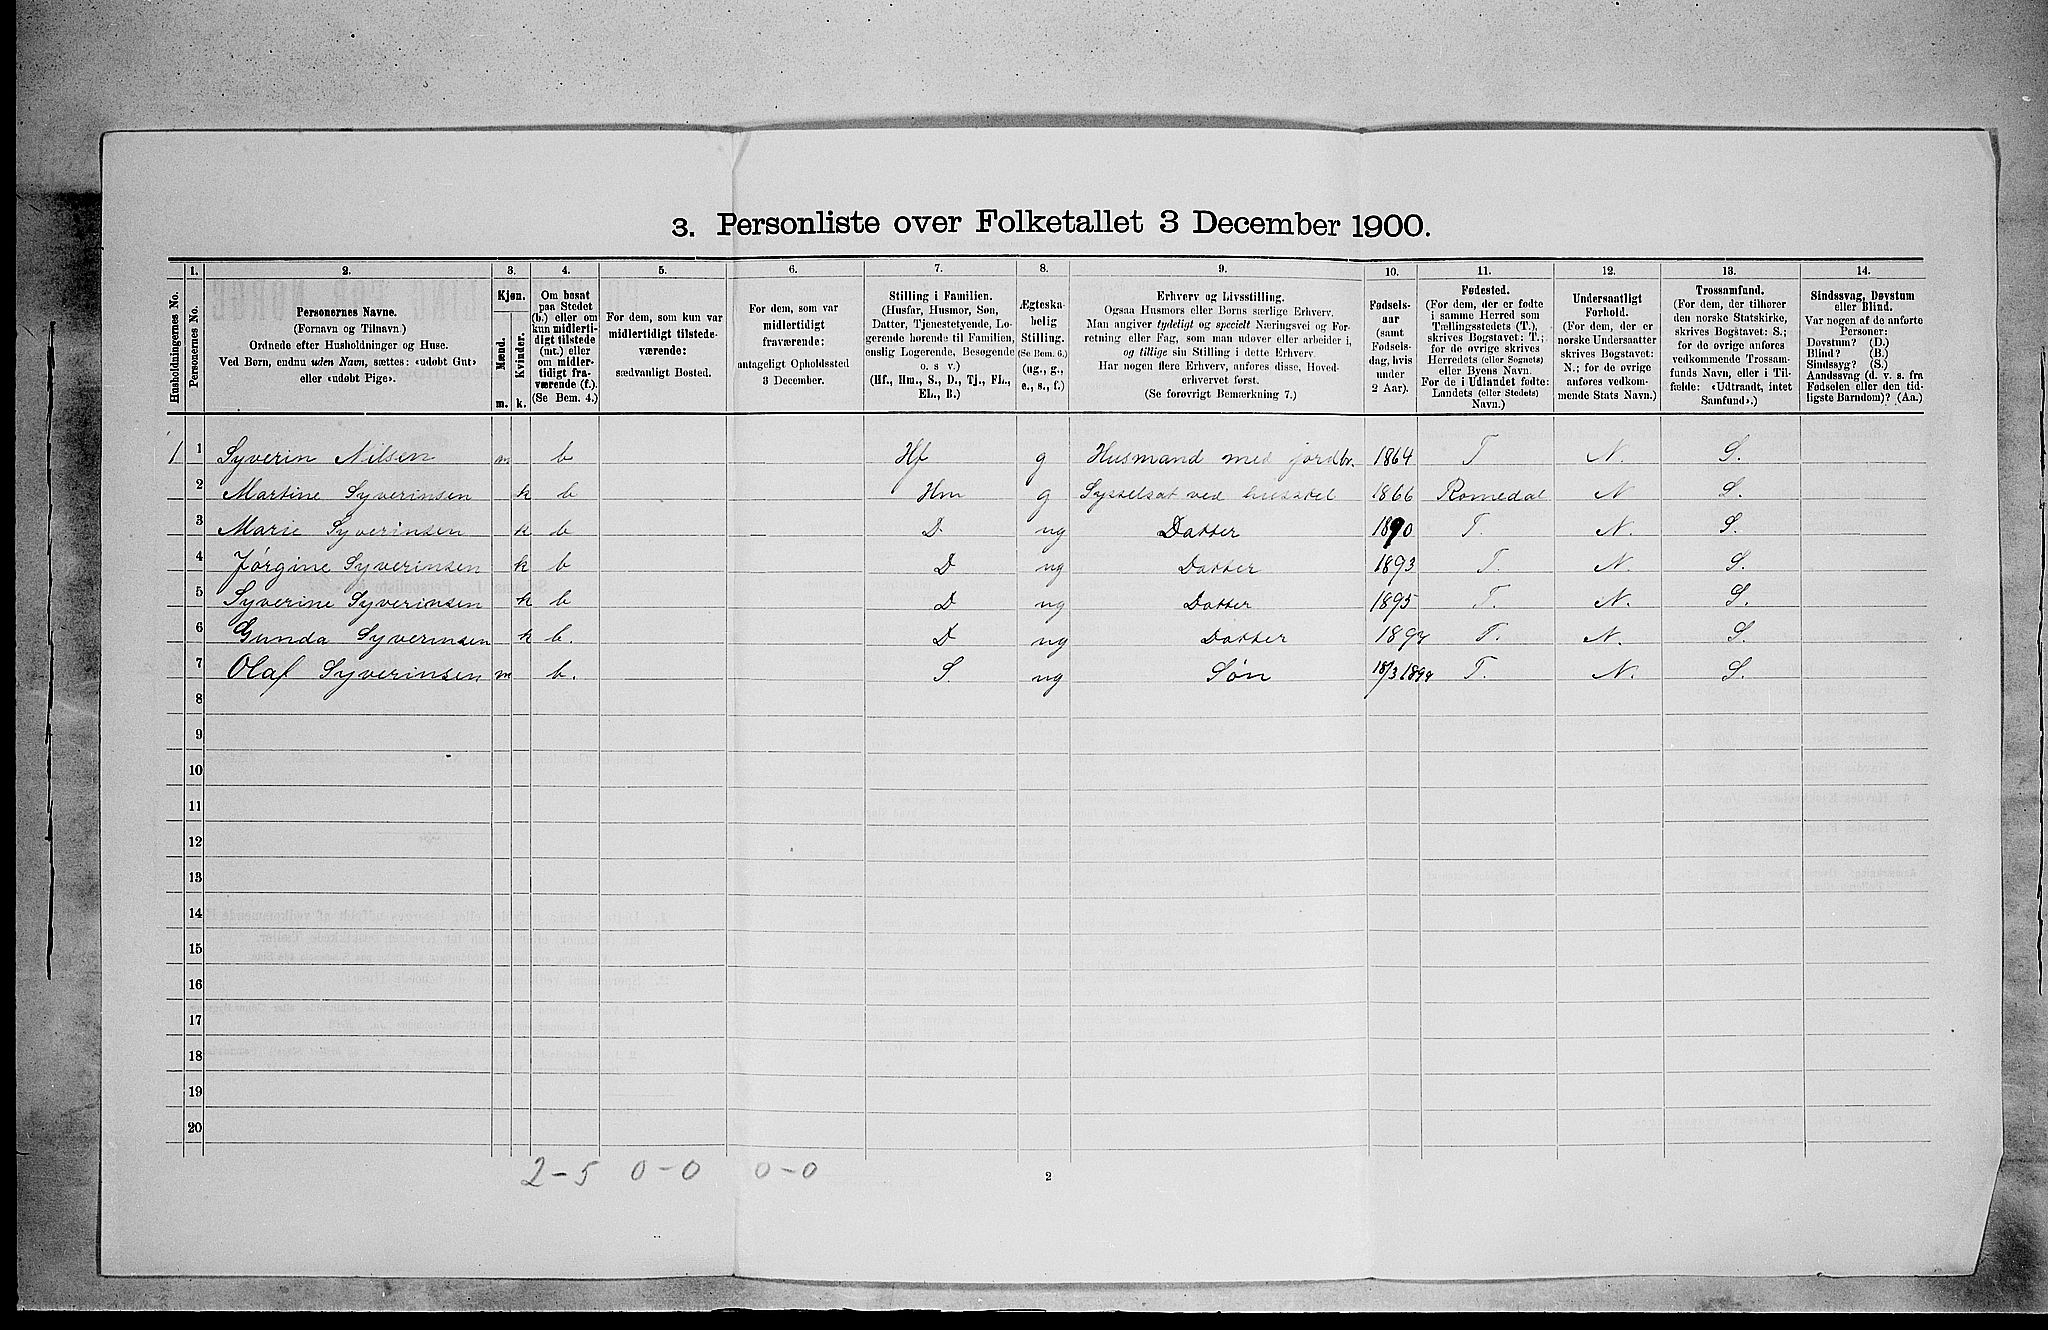 3. Personliste over Folketallet 3 December 1900.
1. 2. 3. 4. 5. 6. 7. 8. 9. 10. 11. 12. 13. 14.
Husholdningernes No.
Personernes No.
Personernes Navne.
(Fornavn og Tilnavn.)
Ordnede efter Husholdninger og Huse.
Ved Børn, endnu uden Navn, sættes: «udøbt Gut»
eller «udøbt Pige».
Kjøn.
Mænd.
Kvinder.
m. k.
Om bosat
paa Stedet
(b.) eller om
kun midlerti-
digt tilstede
(mt.) eller
om midler-
tidigt fra-
værende (f.).
(Se Bem. 4.)
For dem, som kun var
midlertidigt tilstede-
værende:
sædvanligt Bosted.
For dem, som var
midlertidigt
fraværende:
antageligt Opholdssted
3 December.
Stilling i Familien.
(Husfar, Husmor, Søn,
Datter, Tjenestetyende, Lo-
gerende hørende til Familien,
enslig Logerende, Besøgende
o. s. v.)
(Hf., Hm., S., D., Tj., FL.,
EL., B.)
Ægteska-
belig
Stilling.
(Se Bem. 6.)
(ug., g.,
e., s., f.)
Erhverv og Livsstilling.
Ogsaa Husmors eller Børns særlige Erhverv.
Man angiver tydeligt og specielt Næringsvei og For-
retning eller Fag, som man udøver eller arbeider i,
og tillige sin Stilling i dette Erhverv.
Har nogen flere Erhverv, anføres disse, Hoved-
erhvervet først.
(Se forøvrigt Bemærkning 7.)
Fødsels-
aar
(samt
Fødsels-
dag, hvis
under
2 Aar).
Fødested.
(For dem, der er fødte
i samme Herred som
Tællingsstedets (T.),
skrives Bogstavet: T.;
for de øvrige skrives
Herredets (eller Sognets)
eller Byens Navn.
For de i Udlandet fødte:
Landets (eller Stedets)
Navn.)
Undersaatligt
Forhold.
(For dem, der er
norske Undersaatter
skrives Bogstavet:
N.; for de øvrige
anføres vedkom-
mende Stats Navn.)
Trossamfund.
(For dem, der tilhører
den norske Statskirke,
skrives Bogstavet: S.;
for de øvrige anføres
vedkommende Trossam-
funds Navn, eller i Til-
fælde: «Udtraadt, intet
Samfund».)
Sindssvag, Døvstum
eller Blind.
Var nogen af de anførte
Personer:
Døvstum? (D.)
Blind? (B.)
Sindssyg? (S.)
Aandssvag (d. v. s. fra
Fødselen eller den tid-
ligste Barndom)? (Aa.)
1 1 Syverin Nilsen m b Hf g Husmand med jordbr. 1864 T N. S.
2 Martine Syverinsen k b Hm g Sysselsat ved husstel 1866 Romedal N S.
3 Marie Syverinsen k b D ug Datter 1890 T. N. S.
4 Jørgine Syverinsen k b D ug Datter 1893 T. N. S.
5 Syverine Syverinsen k b D ug Datter 1895 T. N. S.
6 Gunda Syverinsen k b. D ug Datter 1897 T. N. S.
7 Olaf Syverinsen m b. S. ug Søn 18/3 1899 T. N. S.
8
9
10
11
12
13
14
15
16
17
18
19
20
2-5 0-0 0-0
2